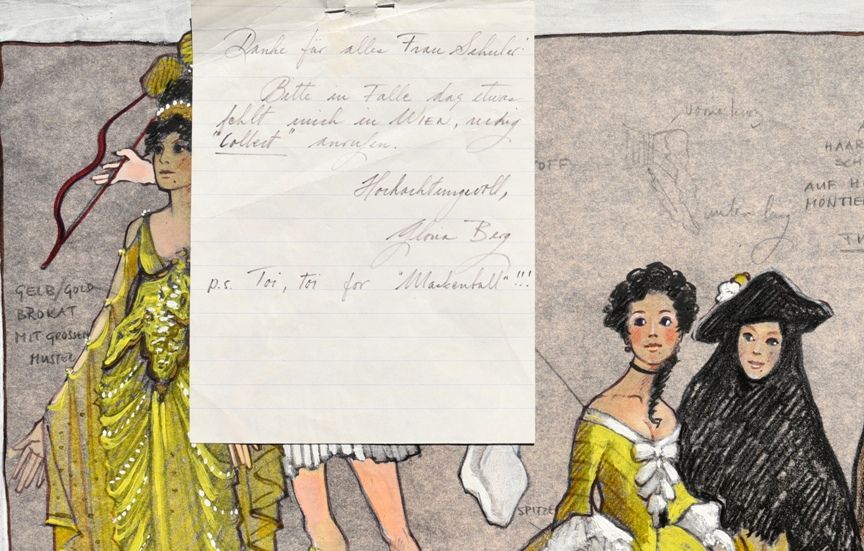 Danke für alles Frau Schuler!
Bitte in Falle das etwas
fehlt mich in WIEN,
"Colbert" anrufen.
Hochachtungsvoll,
Ilona Berg
p.s. Toi, toi for "Maskenball"!!!
GELB/GOLD
BROKAT
MIT GROSSEN
MUSTER
OFF
vorne kurz
unten lang
HAAR
AUF H
MONTIE
SPITZE